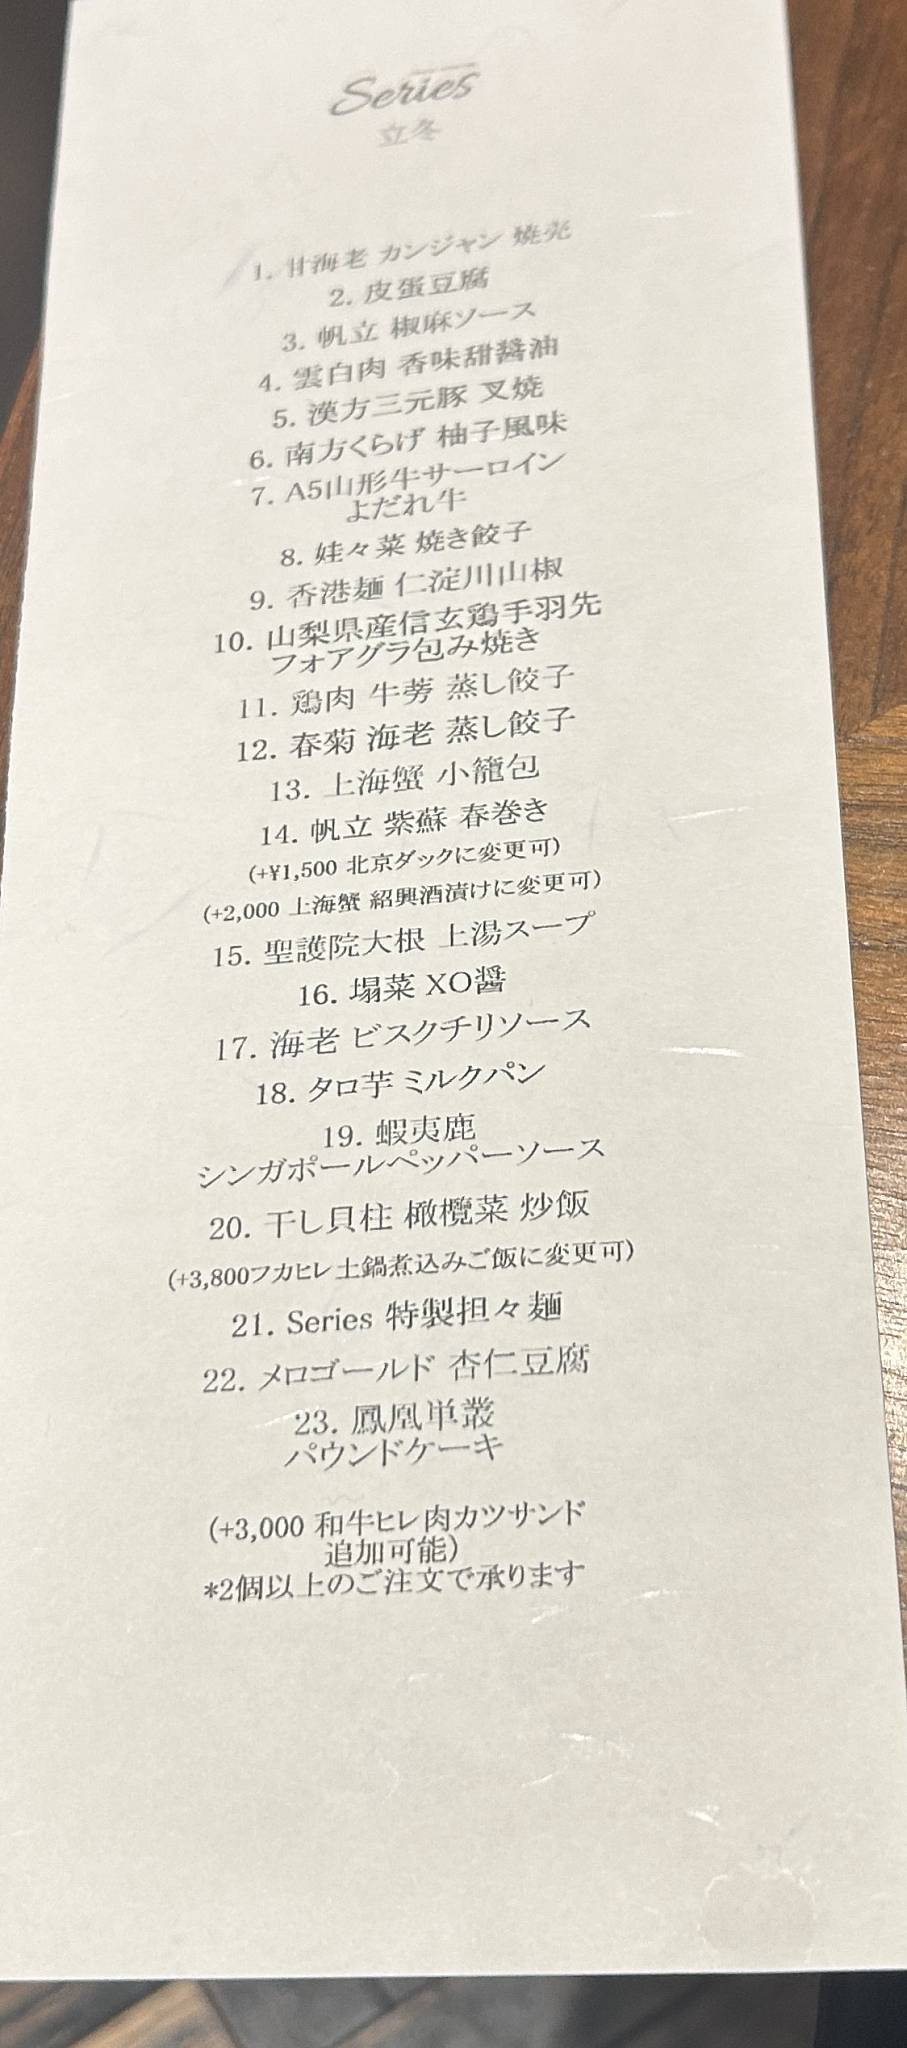 Series
立冬
1. 甘海老 カンジャン 焼売
2. 皮蛋豆腐
3. 帆立 椒麻ソース
4. 雲白肉 香味甜醤油
5. 漢方三元豚 叉焼
6. 南方くらげ 柚子風味
7. A5山形牛サーロイン
よだれ牛
8. 娃々菜 焼き餃子
9. 香港麺 仁淀川山椒
10. 山梨県産信玄鶏手羽先
フォアグラ包み焼き
11. 鶏肉 牛蒡 蒸し餃子
12. 春菊 海老 蒸し餃子
13. 上海蟹 小籠包
14. 帆立 紫蘇 春巻き
(+¥1,500 北京ダックに変更可)
(+2,000 上海蟹 紹興酒漬けに変更可)
15. 聖護院大根 上湯スープ
16. 塌菜 XO醤
17. 海老 ビスクチリソース
18. タロ芋 ミルクパン
19. 蝦夷鹿
シンガポールペッパーソース
20. 干し貝柱 橄欖菜 炒飯
(+3,800フカヒレ土鍋煮込みご飯に変更可)
21. Series 特製担々麺
22. メロゴールド 杏仁豆腐
23. 鳳凰単叢
パウンドケーキ
(+3,000 和牛ヒレ肉カツサンド
追加可能)
*2個以上のご注文で承ります